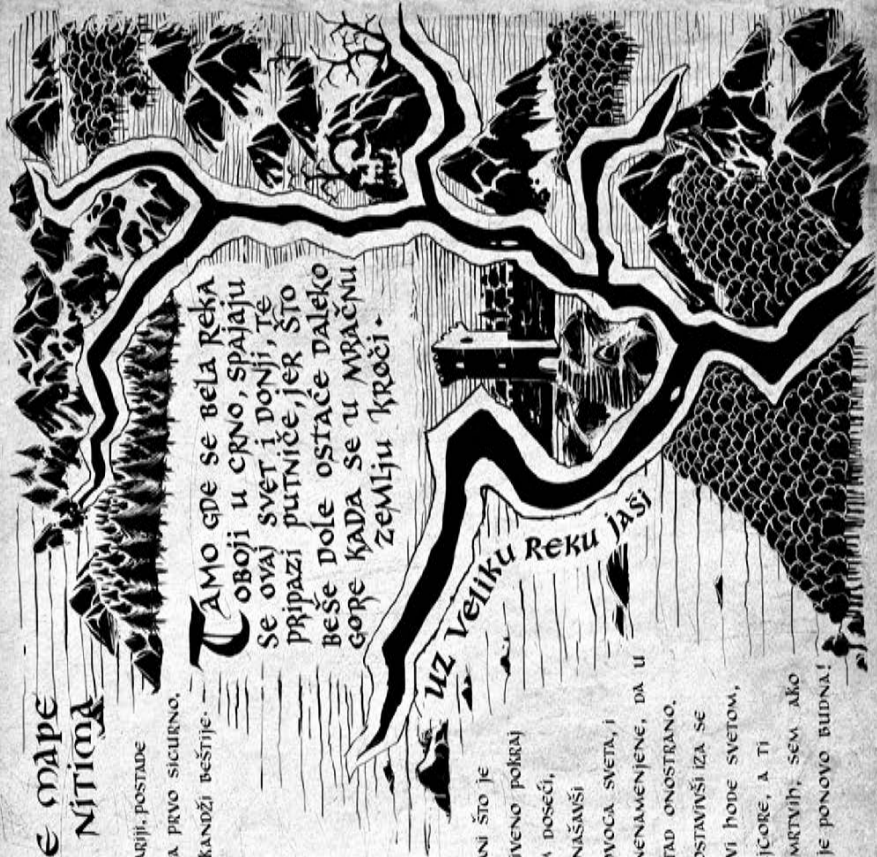 E MAPE
NITIMA
ARIJI. POSTADE
A PRVO SIGURNO.
KANDŽI BEŠTIJE.
TAMO GDE SE BELA REKA
OBOJI U CRNO, SPAJAJU
SE OVAJ SVET I DONJI, TE
PRIPAZI PUTNIČE, JER ŠTO
BEŠE DOLE OSTAĆE DALEKO
GORE KADA SE U MRAČNU
ZEMLJU KROČI.
UZ VELIKU REKU JAŠI
ANI ŠTO JE
IVENO POKRAJ
DOSEĆI,
NAŠAVŠI
VOCA SVETA, I
NENAMENJENE, DA U
TAD ONOSTRANO.
OSTAVIVŠI IZA SE
VI HODE SVETOM,
JGORE, A TI
MRTVIH, SEM AKO
JE PONOVO BUDNA!